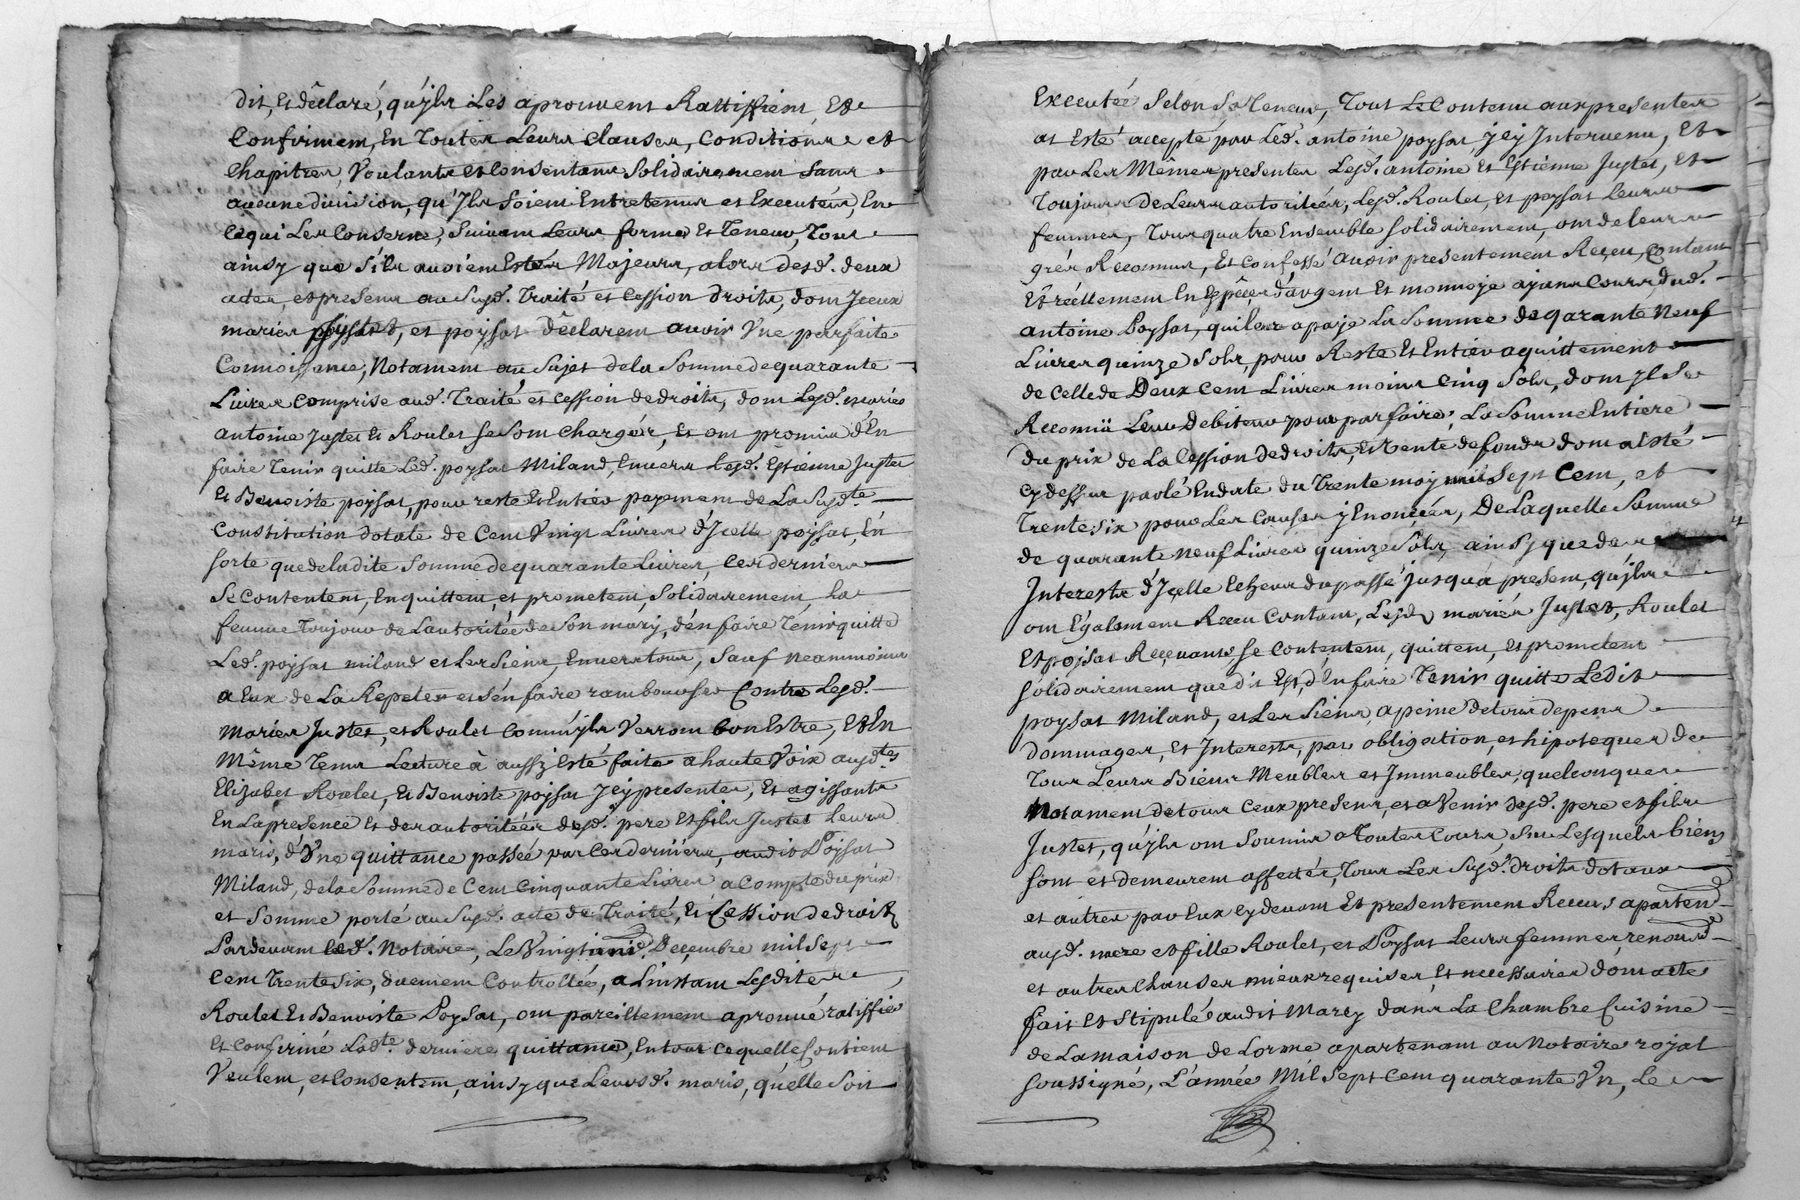 dit, et déclaré, qu'jls Les aprouvent Rattiffient, Et
Confirment, En Toutes Leurs clauses, Conditions et
Chapitres, Voulants et Consentans Solidairement Sans
aucune division, qu'Jls Soient Entretenus et Executés, En
Ce qui Les Conserne, Suivant Leurs forme et Teneur, Tout
ainsy que S'ils avoient Estés Majeurs, alors desd. deux
actes et presens au Susd. Traité et Cession droits, dont Jceux
mariés et poysat déclarent avoir Vne parfaite
Connoissance, Notament au Sujet de la Somme de quarante
Livres comprise aud. Traité et Cession de droits, dont Lesd. mariés
antoine Justet et Roulet Se Sont Chargés, et ont promis d'En
faire Tenir quitte Led. poysat Miland, Envers Lesd. Estienne Justet
Et Benoiste poysat, pour reste Et Entier payement de La Susd.te
Constitution dotale de Cent Vingt Livres d'Jcelle poysat, En
Sorte que de ladite Somme de quarante Livres, Ces derniers
Se Contentent, En quittent, et prometent, Solidairement, La
femme Toujour de L'autoritée de Son mary, d'En faire Tenir quitte
Led. poysat miland et Les Siens, Envers tous, Sauf Neanmoins
a Eux de La Repeter et S'en faire rambourser Contre Lesd.
Mariés Justet, et Roulet Comm'jls Verront bon Estre, Et En
Même Tems Lecture à aussy Esté faite a haute Voix ausd.tes
Elizabet Roulet, Et Benoiste poysat Jcy presentes, Et agissants
En La presence Et des autoritées desd. pere Et fils Justet Leurs
maris, d'Vne quittance passée par Ces derniers, audit Poysat
Miland, de la Somme de Cent Cinquante Livres a Compte du prix
et Somme porté au Susd. acte de Traité, Et Cession de droits
Pardevant Led. Notaire, Le Vingt Decembre mil Sept
Cent Trente Six, duement Controllée, a L'instant Lesdites
Roulet Et Benoiste Poysat, ont pareillement aprouvé ratiffié
Et Confirmé Lad.te derniere quittance, En tout Ce qu'elle Contient
Veulent, et Consentent, ainsy que Leursd. maris, qu'elle Soit
Executée Selon Sa Teneur, Tout Le Contenu aux presentes
at Esté accepté par Led. antoine poysat, jcy Jntervenu, Et
par Les Mêmes presentes Lesd. antoine et Estienne Justet, Et
Toujours de Leurs autoritées, Lesd. Roulet, et poysat Leurs
femmes, Tous quatre Ensemble Solidairement, ont de Leurs
grés Reconnus, Et Confessé avoir presentement Reçeu, Contant
Et réellement En Espêçes d'argent Et monnoje ajant Cours, dud.
antoine Poysat, qui leur a paje La Somme de qarante Neuf
Livres quinze Sols, pour Reste Et Entier aquittement
de Celle de Deux Cent Livres moins Cinq Sols, dont Jl Se
Leur Debiteur pour parfaire, La Somme Entiere
du prix de La Cession de droits, Et Vente de fonds dont at Esté
Cy dessus parlé En date du Trente may mil Sept Cent, et
Trente six pour Les Causes y Enoncées, De Laquelle Somme
de quarante Neuf Livres quinze Sols, ainsy que des
Jnterests d'Jcelle Echeus du passé jusqu'à present, qu'jls
ont Egalement Receu Contant, Lesd. mariés Justet, Roulet
Et poysat Reçevants, Se Contentent, quittent, et prometent
Solidairement que dit Est, d'En faire Tenir quitte Ledit
poysat Miland, et Les Siens, a peine de tous depens
dommages, Et Jnterests, par obligation, et hipoteques de
Tous Leurs Biens Meubles et Jmmeubles, quelconques
Notament de tous Ceux presens, et a Venir desd. pere et fils
Justet, qu'jls ont Soumis a Toutes Cours, Sur Lesquels biens
Sont et demeurent affectés, Tous Les Susd. droits dotaux
et autres par Eux cy devant Et presentement Receus aparten.
ausd. mere et fille Roulet, et Poysat Leurs femmes,
et autres Chauses mieux requises, Et necessaires dont acte
fait Et Stipulé audit Marcy dans La Chambre Cuisine
de La maison de Lorme apartenant au Notaire royal
Soussigné, L'année Mil Sept Cent quarante Vn, Le